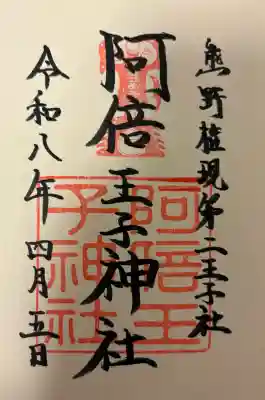 熊野権現第二王子社
阿倍王子神社
令和八年 四月五日
阿倍王
子神社